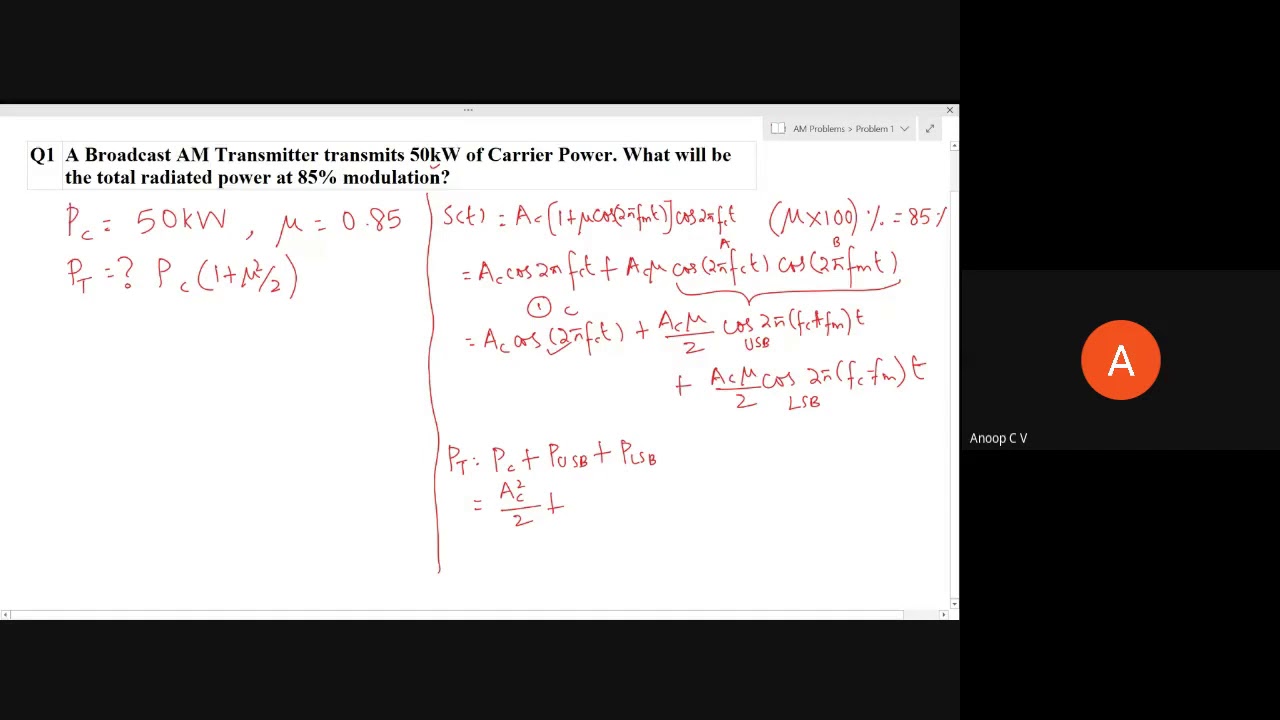 AM Problems > Problem 1
Q1 A Broadcast AM Transmitter transmits 50kW of Carrier Power. What will be
the total radiated power at 85% modulation?
P_c = 50kW , μ = 0.85
P_T = ? P_c (1+μ²/2)
S(t) = A_c [1+μcos(2πf_mt)] cos2πf_ct (μ×100) % = 85%
A B
= A_c cos2πf_ct + A_cμ cos(2πf_ct) cos(2πf_mt)
① C
= A_c cos(2πf_ct) + A_cμ/2 cos 2π(f_c+f_m)t
USB
+ A_cμ/2 cos 2π(f_c-f_m)t
LSB
P_T = P_c + P_USB + P_LSB
= A_c²/2 +
A
Anoop C V